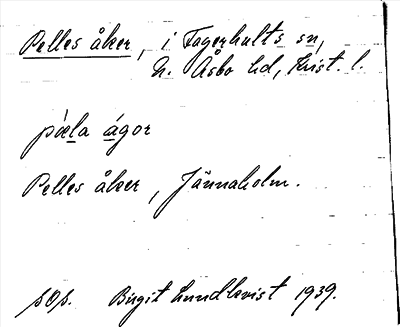 Pelles åker, i Fagerhults sn,
N. Åsbo hd, Krist. l.
pæ̀la ágor
Pelles åker, Jännaholm.
sOs. Birgit Lundkvist 1939.